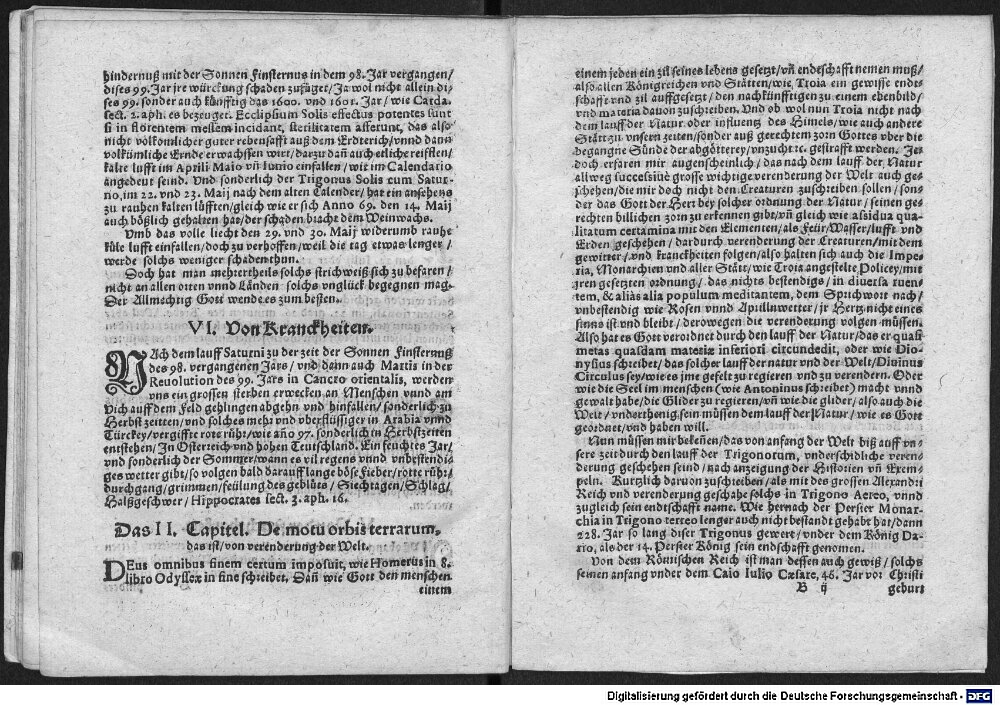 hindernuß mit der Sonnen Finsternus in dem 98. Jar vergangen/
dises 99. Jar jre würckung schaden zufüget/ Ja wol nicht allein di-
ses 99. sonder auch künfftig das 1600. vnd 1601. Jar/ wie Carda.
sect. 2. aph. es bezeuget. Ecclipsium Solis effectus potentes sunt
si in florentem messem incidant, sterilitatem afferunt, das also
nicht volkömlicher guter rebensafft auß dem Erdterich/ vnnd dann
volkümliche Ernde erwachssen wirt/ darzu dañ auch etliche reifften/
kalte lufft im Aprili Maio vñ Iunio einfallen/ wie im Calendario
angedeut seind. Vnd sonderlich der Trigonus Solis cum Satur-
no, im 22. vnd 23. Maij nach dem alten Calender/ hat ein ansehens
zu rauhen kalten lüfften/ gleich wie er sich Anno 69. den 14. Maij
auch bößlich gehalten hat/ der schaden bracht dem Weinwachs.
Vmb das volle liecht den 29. vnd 30. Maij widerumb rauhe
küle lufft einfallen/ doch zu verhoffen/ weil die tag etwas lenger/
werde solchs weniger schaden thun.
Doch hat man mehrertheils solchs strichweiß sich zu befaren/
nicht an allen orten vnnd Länden solchs vnglück begegnen mag.
Der Allmechtig Gott wende es zum besten.
VI. Von Kranckheiten.
NAch dem lauff Saturni zu der zeit der Sonnen Finsternuß
des 98. vergangenen Jars/ vnd dann auch Martis in der
Reuolution des 99. Jars in Cancro orientalis, werden
vns ein grossen sterben erwecken an Menschen vnnd am
Vich auff dem Feld gehlingen abgehn vnd hinfallen/ sonderlich zu
Herbst zeitten/ vnd solches mehr vnd vberflüssiger in Arabia vnnd
Türckey/ vergiffte rote rühr/ wie año 97. sonderlich in Herbstzeiten
entstehen/ In Osterreich vnd hohen Teutschland. Ein feuchtes Jar/
vnd sonderlich der Sommer/ wann es vil regens vnnd vnbestendi-
ges wetter gibt/ so volgen bald darauff lange böse Fieber/ rotte rühr/
durchgang/ grimmen/ feülung des geblüts/ Siechtagen/ Schlag/
Halßgeschwer/ Hippocrates sect. 3. aph. 16.
Das II. Capitel. De motu orbis terrarum,
das ist/ von verenderung der Welt.
DEus omnibus finem certum imposuit, wie Homerus in 8.
libro Odyssex in fine schreibet. Dañ wie Gott den menschen
einem
einem jeden ein zil seines lebens gesetzt/ vñ endeschafft nemen muß/
also allen Königreichen vnd Stätten/ wie Troia ein gewisse endt-
schafft vnd zil auffgesetzt/ den nachkünfftigen zu einem ebenbild/
vnd materia dauon zuschreiben. Vnd ob wol nun Troia nicht nach
dem lauff der Natur oder influentz des Himels/ wie auch andere
Stätt zu vnsern zeiten/ sonder auß gerechtem zorn Gottes vber die
begangne Sünde der abgötterey/ vnzucht ⁊c. gestrafft werden. Je-
doch erfaren mir augenscheinlich/ das nach dem lauff der Natur
allweg successiuè grosse wichtige verenderung der Welt auch ge-
schehen/ die mir doch nicht den Creaturen zuschreiben sollen/ son-
der das Gott der Herr bey solcher ordnung der Natur/ seinen ge-
rechten billichen zorn zu erkennen gibt/ vñ gleich wie assidua qua-
litatum certamina mit den Elementen/ als Feür/ Wasser/ lufft vnd
Erden geschehen/ dardurch verenderung der Creaturen/ mit dem
gewitter/ vnd kranckheiten folgen/ also halten sich auch die Impe-
ria, Monarchien vnd aller Stätt/ wie Troia angestelte Policey/ mit
jren gesetzten ordnung/ das nichts bestendigs/ in diuersa ruen-
tem, & aliàs alia populum meditantem, dem Sprichwort nach/
vnbestendig wie Rosen vnnd Aprillnwetter/ jr Hertz nicht eines
sinns ist vnd bleibt/ derowegen die verenderung volgen müssen.
Also hat es Gott verordnet durch den lauff der Natur/ das er quasi
metas quasdam materiæ inferiori circundedit, oder wie Dio-
nysius schreibet/ das solcher lauff der natur vnd der Welt/ Diuinus
Circulus sey/ wie es jme gefelt zu regieren vnd zu verendern. Oder
wie die Seel im menschen (wie Antoninus schreibet) macht vnnd
gewalt habe/ die Glider zu regieren/ vñ wie die glider/ also auch die
Welt/ vnderthenig sein müssen dem lauff der Natur/ wie es Gott
geordnet/ vnd haben will.
Nun müssen mir bekeñen/ das von anfang der Welt biß auff vn-
sere zeit durch den lauff der Trigonorum, vnderschidliche veren-
derung geschehen seind/ nach anzeigung der Historien vñ Exem-
peln. Kurtzlich daruon zuschreiben/ als mit des grossen Alexandri
Reich vnd verenderung geschahe solchs in Trigono Aereo, vnnd
zugleich sein endtschafft name. Wie hernach der Persier Monar-
chia in Trigono terreo lenger auch nicht bestandt gehabt hat/ dann
228. Jar so lang diser Trigonus gewert/ vnder dem König Da-
rio, als der 14. Persier König sein endschafft genomen.
Von dem Römischen Reich ist man dessen auch gewiß/ solchs
seinen anfang vnder dem Caio Iulio Cæsare, 46. Jar vor Christi
B ij geburt
Digitalisierung gefördert durch die Deutsche Forschungsgemeinschaft - DFG